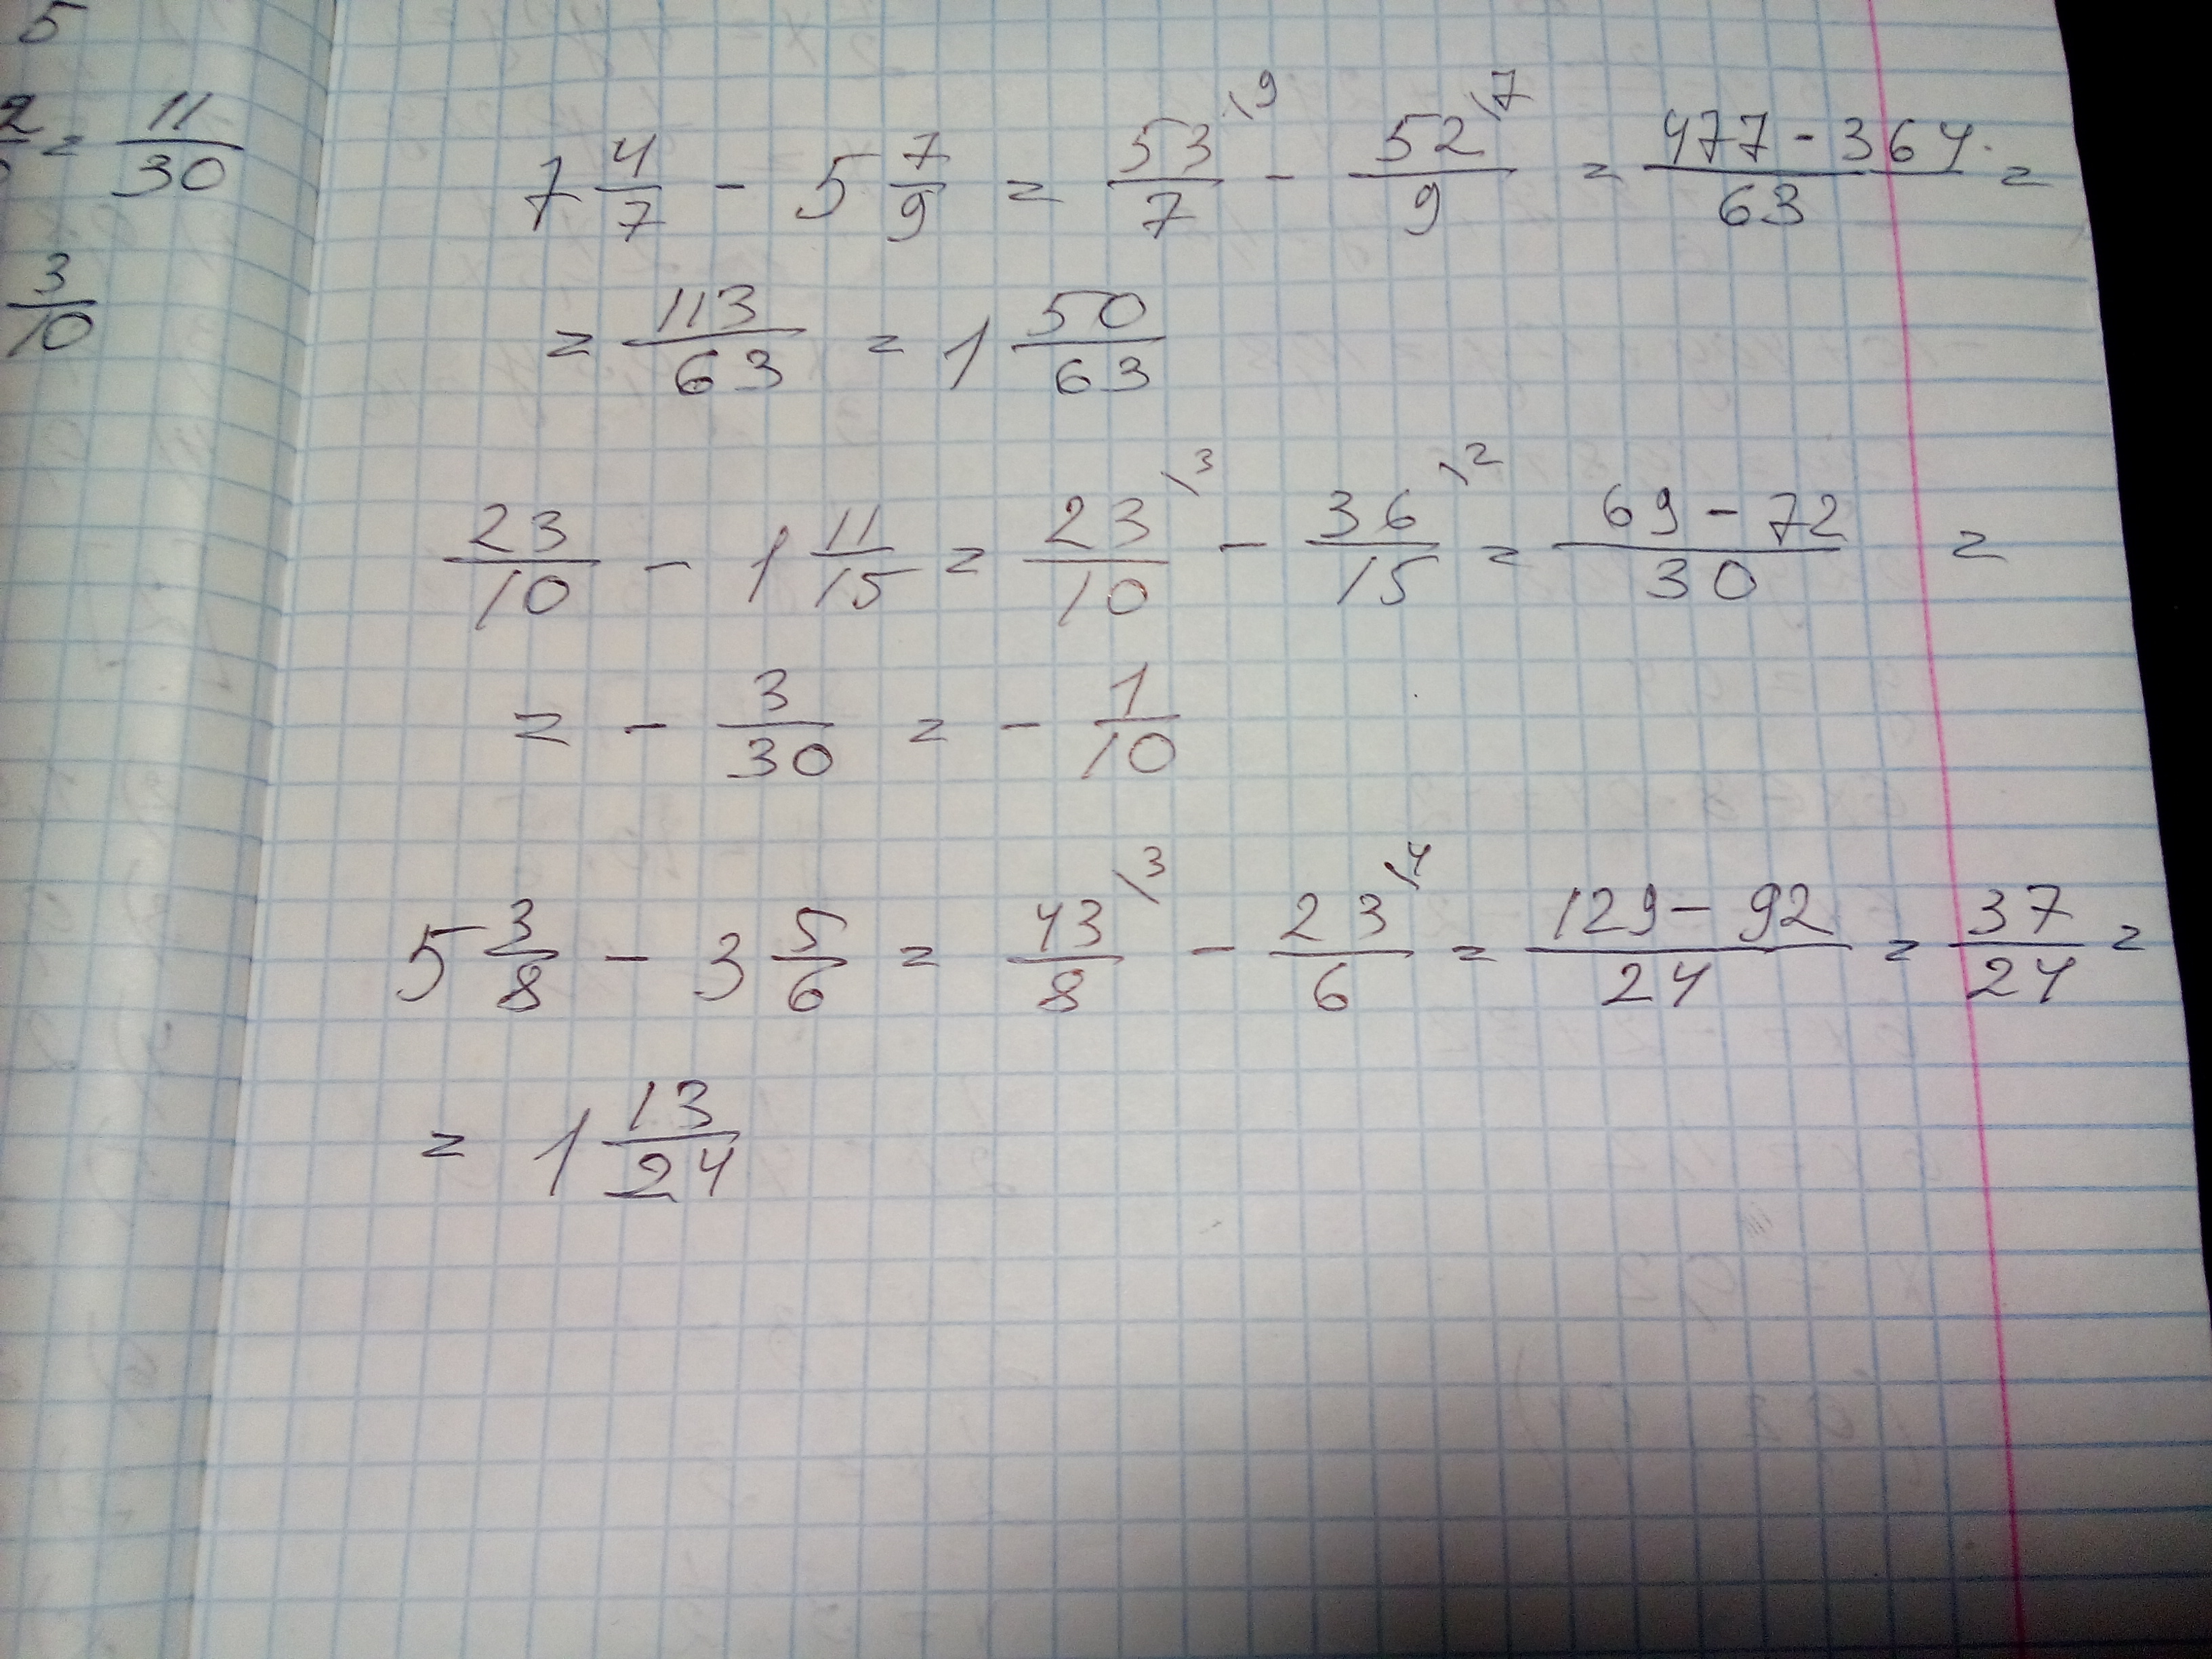 5
2/ = 11/30
3/10
7 4/7 - 5 7/9 = 53/7 \9 - 52/9 \7 = 477 - 364/63 =
= 113/63 = 1 50/63
23/10 - 1 11/15 = 23/10 \3 - 36/15 \2 = 69 - 72/30 =
= - 3/30 = - 1/10
5 3/8 - 3 5/6 = 43/8 \3 - 23/6 \4 = 129 - 92/24 = 37/24 =
= 1 13/24